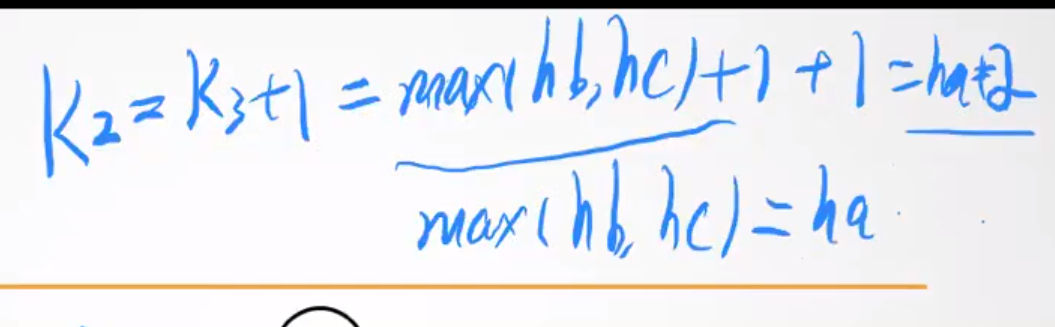 K2 = K3+1 = max(hb,hc)+1+1 = ha+2
max(hb,hc) = ha